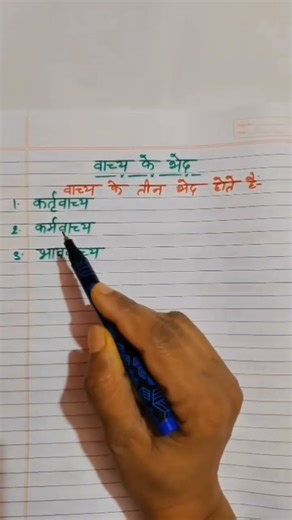 वाच्य के भेद
वाच्य के तीन भेद होते है-
1. कर्तृवाच्य
2. कर्मवाच्य
3. भाववाच्य